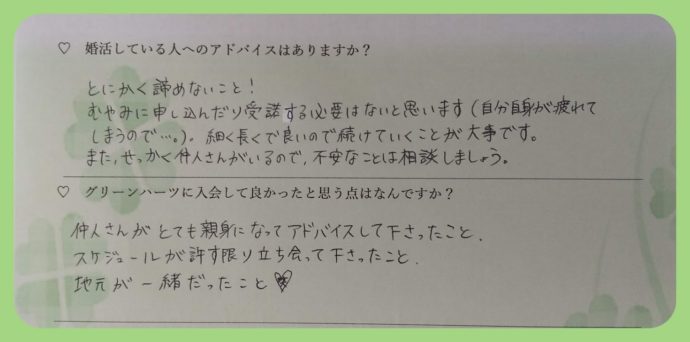 ♡ 婚活している人へのアドバイスはありますか？
とにかく諦めないこと！
むやみに申し込んだり受諾する必要はないと思います（自分自身が疲れて
しまうので…。）。細く長くで良いので続けていくことが大事です。
また、せっかく仲人さんがいるので、不安なことは相談しましょう。
♡ グリーンハーツに入会して良かったと思う点はなんですか？
仲人さんがとても親身になってアドバイスして下さったこと．
スケジュールが許す限り立ち会って下さったこと．
地元が一緒だったこと♡